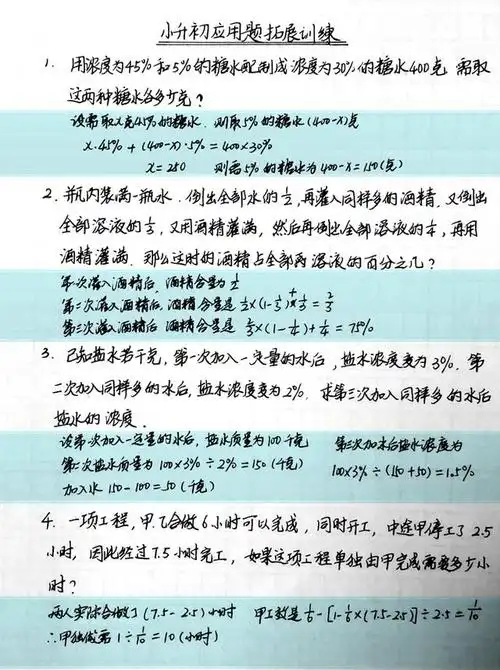 小升初应用题拓展训练
1. 用浓度为45%和5%的糖水配制成浓度为30%的糖水400克 需取
这两种糖水各多少克？
设需取x克45%的糖水. 则取5%的糖水(400-x)克
x·45% + (400-x)·5% = 400×30%
x = 250 则需5%的糖水为400-x=150(克)
2. 瓶内装满一瓶水. 倒出全部水的1/2, 再灌入同样多的酒精. 又倒出
全部溶液的1/3, 又用酒精灌满, 然后再倒出全部溶液的1/4, 再用
酒精灌满. 那么这时的酒精占全部溶液的百分之几？
第一次灌入酒精后. 酒精含量为1/2
第二次灌入酒精后, 酒精含量是 1/2×(1-1/3)+1/3=2/3
第三次灌入酒精后 酒精含量是 2/3×(1-1/4)+1/4=75%
3. 已知盐水若干克, 第一次加入一定量的水后, 盐水浓度变为3%. 第
二次加入同样多的水后, 盐水浓度变为2%. 求第三次加入同样多的水后
盐水的浓度.
设第一次加入一定量的水后, 盐水质量为100千克 第三次加水后盐水浓度为
第二次盐水质量为 100×3%÷2%=150(千克) 100×3%÷(150+50)=1.5%
加入水 150-100=50(千克)
4. 一项工程, 甲、乙合做6小时可以完成, 同时开工, 中途甲停工了2.5
小时, 因此经过7.5小时完工, 如果这项工程单独由甲完成需要多少小
时？
两人实际合做了(7.5-2.5)小时 甲工效是1/6-[1-1/6×(7.5-2.5)]÷2.5=1/10
∴甲独做需 1÷1/10=10(小时)